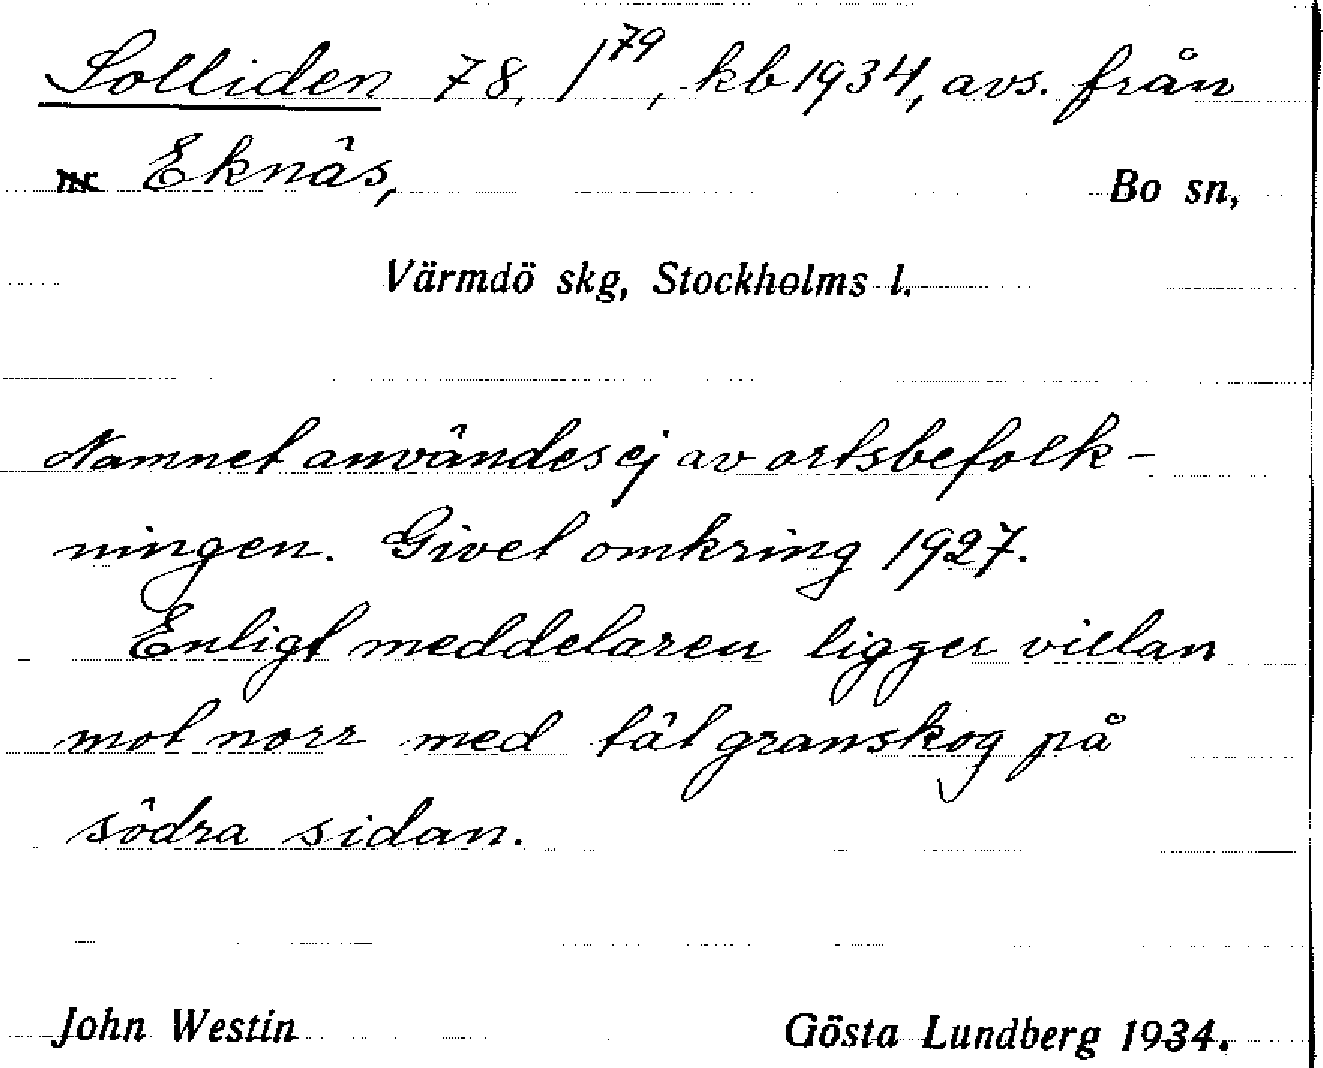 Solliden 78, /79, kb 1934, avs. från
Eknäs, Bo sn,
Värmdö skg, Stockholms l.
Namnet användes ej av ortsbefolk-
ningen. Givet omkring 1927.
Enligt meddelaren ligger villan
mot norr med tät granskog på
södra sidan.
John Westin Gösta Lundberg 1934.